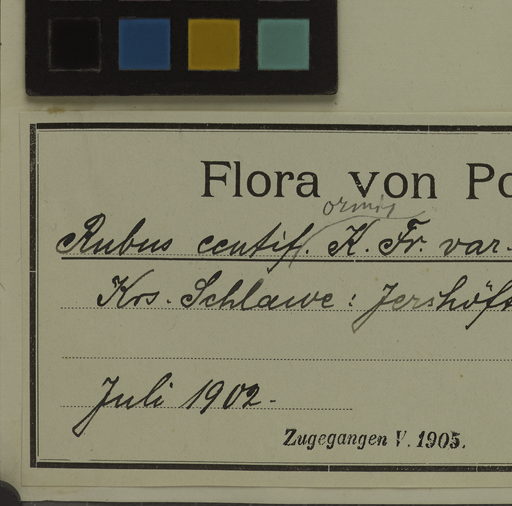 Flora von Po
ormis
Rubus centif. K. Fr. var.
Krs. Schlawe: Jershöft
Juli 1902.
Zugegangen V. 1905.